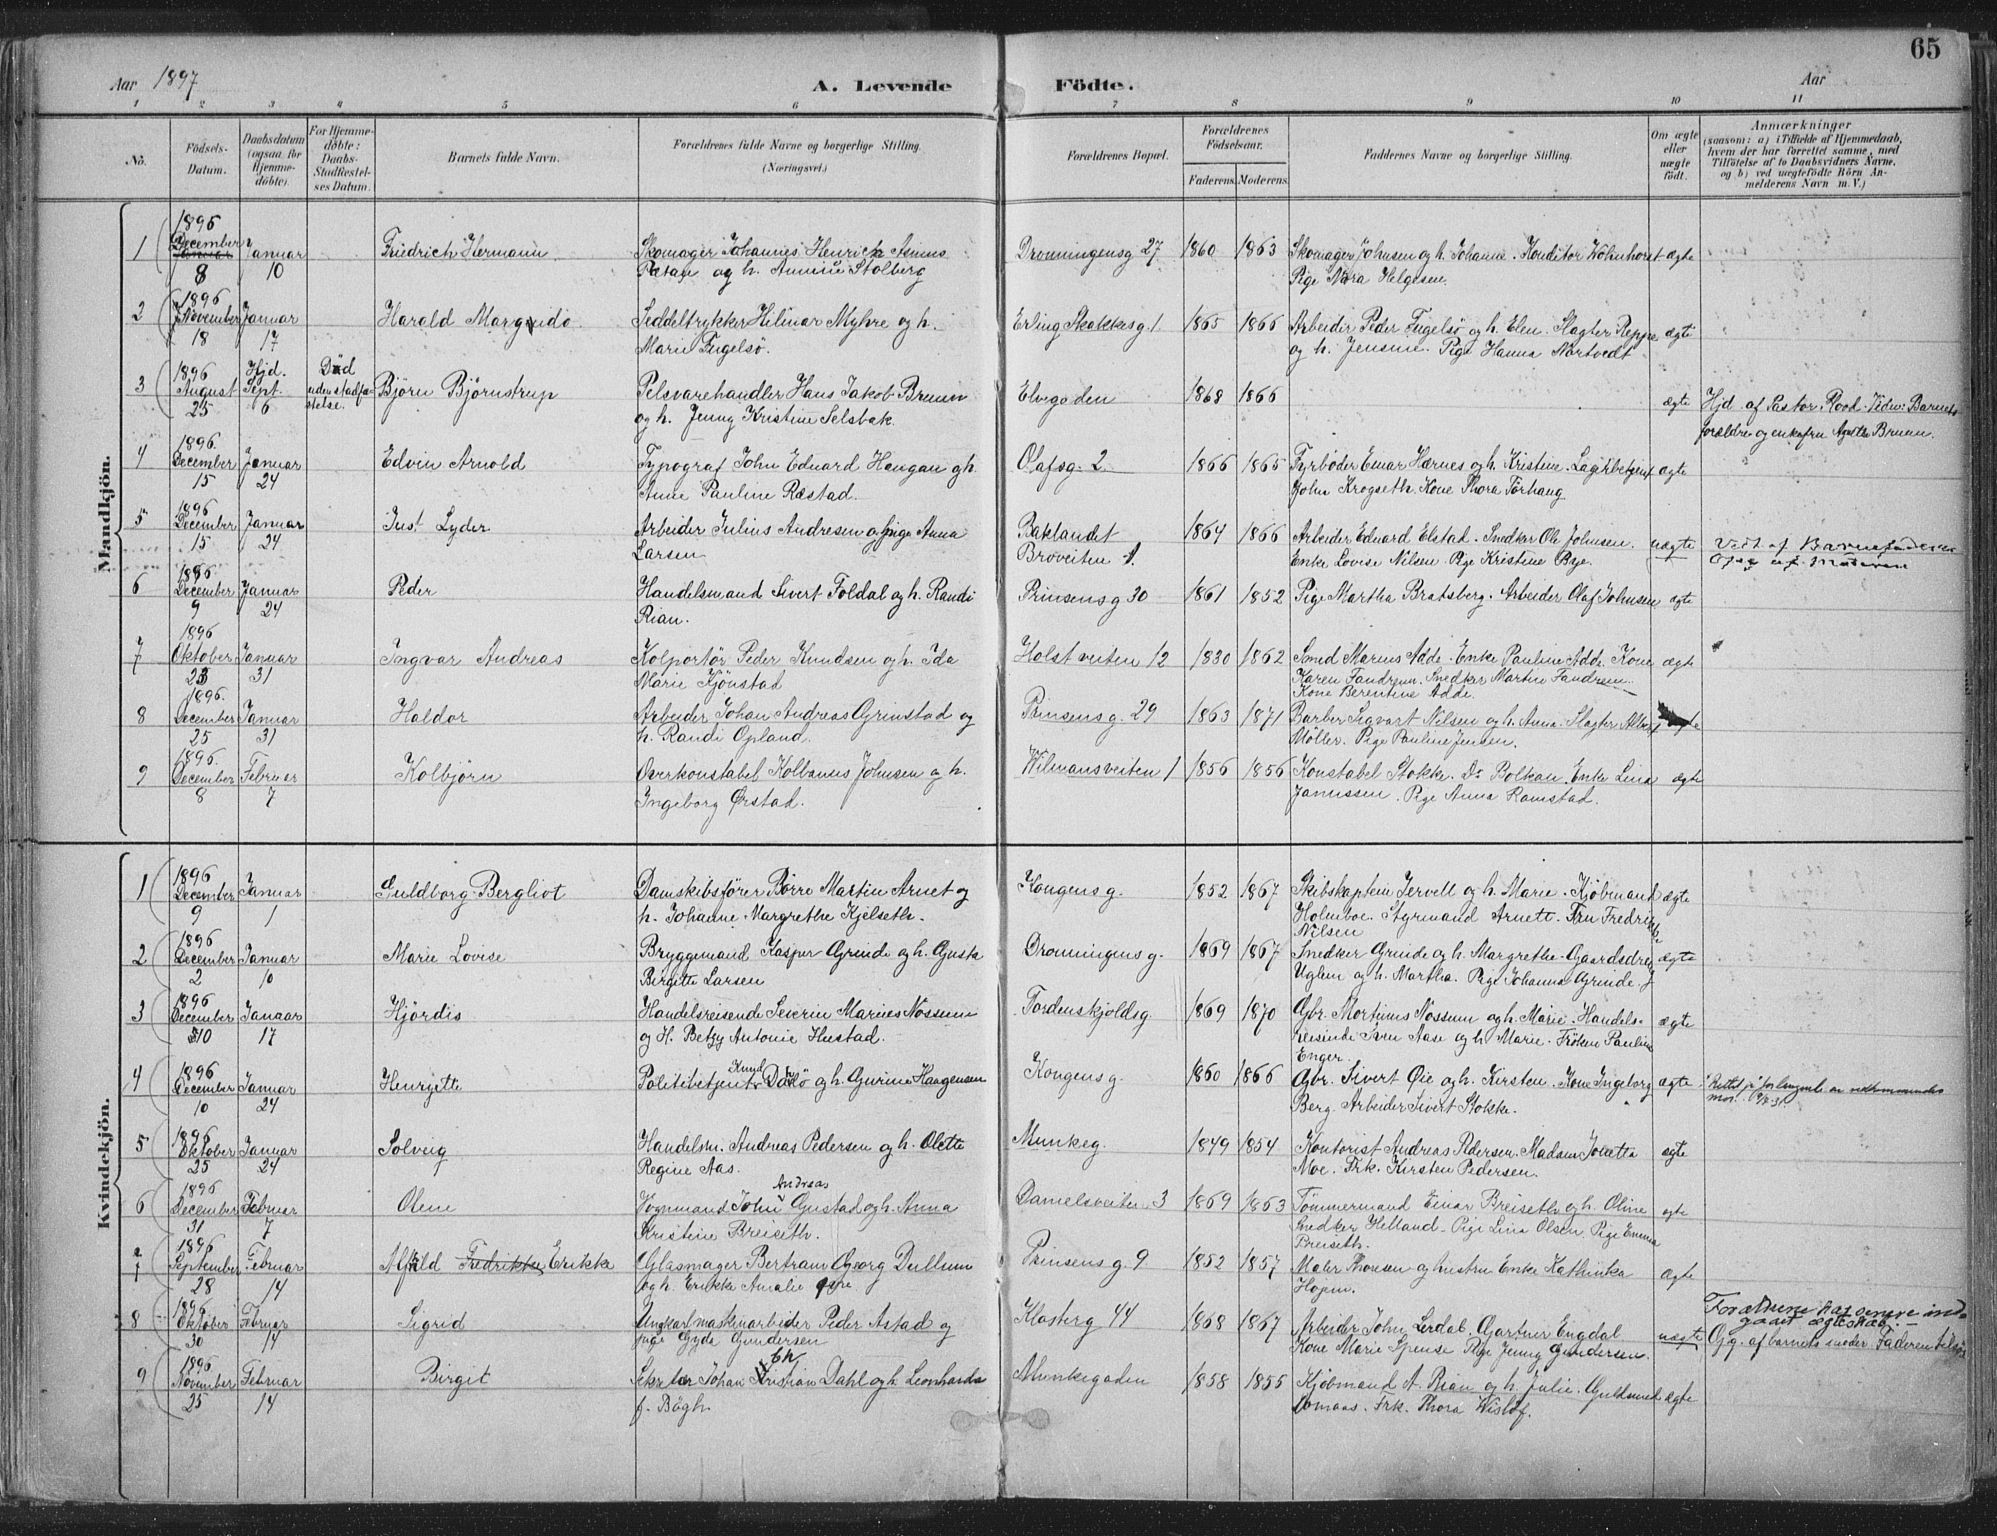 65
Aar 1897
A. Levende Födte.
Aar
1 2 3 4 5 6 7 8 9 10 11
No.
Födsels-Datum.
Daabsdatum (ogsaa for Hjemme-döbte).
For Hjemme-döbte: Daabs-Stadfæstel-ses Datum.
Barnets fulde Navn.
Forældrenes fulde Navne og borgerlige Stilling. (Næringsvei.)
Forældrenes Bopæl.
Forældrenes Födselsaar.
Faderens. Moderens.
Faddernes Navne og borgerlige Stilling.
Om ægte eller uægte födt.
Anmærkninger
(saasom: a) i Tilfælde af Hjemmedaab, hvem der har forrettet samme, med Tilföielse af to Daabsvidners Navne, og b) ved uægtefödte Börn An-melderens Navn m. V.)
Mandkjön.
1 1896 December 8 Januar 10 Friedrich Hermann Skomager Johannes Henrich Asmus og h. Annine Stolberg Dronningensg 27 1860 1863 Skomager Johnsen og h. Johanne. Konditor Wolnhorst Pige Nora Helgesen. ægte
2 1896 November 18 Januar 17 Harald Margvido Seddeltrykker Hilmar Myhre og h. Marie Fugelsø. Erling Skakkesg 1 1865 1866 Arbeider Peder Fugelsø og h. Elen. Slagter Reppe og h. Jensine. Pige Hanna Nortvedt ægte
3 1896 August 25 Hjd. Sept. 6 Død uden stadfæstelse. Bjørn Bjørnstrup Pelsvarehandler Hans Jakob Bruun og h. Jenny Kristine Selsbak. Elvegaden 1868 1866 ægte Hjd af Pastor Rood. Vidn: Barnets forældre og enkefru Agathe Bruun.
4 1896 December 15 Januar 24 Edvin Arnold Typograf John Eduard Haugan og h. Anne Pauline Ræstad. Olafsg. 2 1866 1865 Fyrbøder Einar Hærnes og h. Kristine. Lagerbetjent John Krogseth. Kone Thora Förhaug ægte
5 1896 December 15 Januar 24 Just Lyder Arbeider Julius Andresen og pige Anna Larsen Baklandet Broveiten 1. 1864 1866 Arbeider Eduard Elstad. Snedker Ole Johnsen. Enke Lovise Nilsen Pige Kristine Rye. uægte Vedt. af Barnefaderen Opg. af Moderen
6 1896 December 9 Januar 24 Peder Handelsmand Sivert Foldal og h. Randi Rian. Prinsensg 30 1861 1852 Pige Martha Bratsberg. Arbeider Olaf Johnsen ægte
7 1896 Oktober 23 Januar 31 Ingvar Andreas Kolportör Peder Knudsen og h. Ida Marie Kjönstad Holstveiten 12 1830 1862 Smed Marius Adde. Enke Pauline Adde. Kone Karen Fandrem. Snedker Martin Fandrem. Kone Berentine Adde. ægte
8 1896 December 25 Januar 31 Haldor Arbeider Johan Andreas Grinstad og h. Randi Opland. Prinsensg. 29 1863 1871 Barber Sigvart Nilsen og h. Anna. Slagter Møller. Pige Pauline Jensen. ægte
9 1896 December 8 Februar 7 Kolbjörn Overkonstabel Kolbanus Johnsen og h. Ingeborg Ørstad. Wilmansveiten 1 1856 1856 Konstabel Stokke. Do Bolkan. Enke Lina Janussen. Pige Anna Ramstad. ægte
Kvindekjön.
1 1896 December 9 Januar 1 Guldborg Bergliot Damskibsfører Børre Martin Arnet og h. Johanne Margrethe Kjelseth. Kongensg. 1852 1867 Skibskaptein Jervell og h. Marie. Kjøbmand Holmboe. Styrmand Arnett. Fru Fredrikke Nilsen ægte
2 1896 December 2 Januar 10 Marie Lovise Bryggemand Kasper Grinde og h. Gusta Birgitte Larsen Dronningensg. 1869 1867 Snedker Grinde og h. Margrethe. Gaardsdreng Uglem og h. Martha. Pige Johanna Grinde. ægte
3 1896 December 10 Januar 17 Hjördis Handelsreisende Severin Marius Nossum og H. Betzy Antonie Hustad. Tordenskjoldsg. 1869 1870 Gbr. Mortinus Nossum og h. Marie. Handelsreisende Sven Aase og h. Marie. Fröken Pauline Enger. ægte
4 1896 December 10 Januar 24 Henryette Politibetjent Knud Dahlø og h. Gurine Haagensen Kongensg. 1860 1866 Gbr. Sivert Øie og h. Kirsten. Kone Ingeborg Berg. Arbeider Sivert Stokke. ægte Rettet på forlangende av vedkommendes mor.
5 1896 Oktober 25 Januar 24 Solveig Handelsm. Andreas Pedersen og h. Olette Regine Aas. Munkeg. 1849 1854 Kontorist Andreas Pedersen. Madam Jonetta Moe. Frk. Kirsten Pedersen. ægte
6 1896 December 31 Februar 7 Olene Vognmand John Andreas Gustad og h. Anna Kristine Breiseth. Danielsveiten 3 1869 1863 Tömmermand Einar Breiseth og h. Oline Snedker Helland. Pige Lina Olsen. Pige Emma Breiseth. ægte
7 1896 September 28 Februar 14 Alfhild Fredrikke Erikke Glasmager Bertram Georg Dullum og h. Erikke Amalie Prinsensg. 9 1852 1857 Maler Thonsen og hustru Enke Kathinka Hojem. ægte
8 1896 Oktober 30 Februar 14 Sigrid Ungkarl maskinarbeider Peder Astad og pige Gyda Gundersen Klosterg 44 1868 1867 Arbeider John Lerdal. Gartner Engdal Kone Marie Spense Pige Jenny Gundersen. uægte Forældrene har senere indgaaet ægteskab. Opg. af barnets moder. Faderen
9 1896 November 25 Februar 14 Birgit Sekretær Johan Christian Dahl og h. Leonharda f. Bøgh. Munkegaden 1858 1855 Kjøbmand A. Rian og h. Julie. Guldsmed Lomaas. Frk. Thora Wisløf. ægte